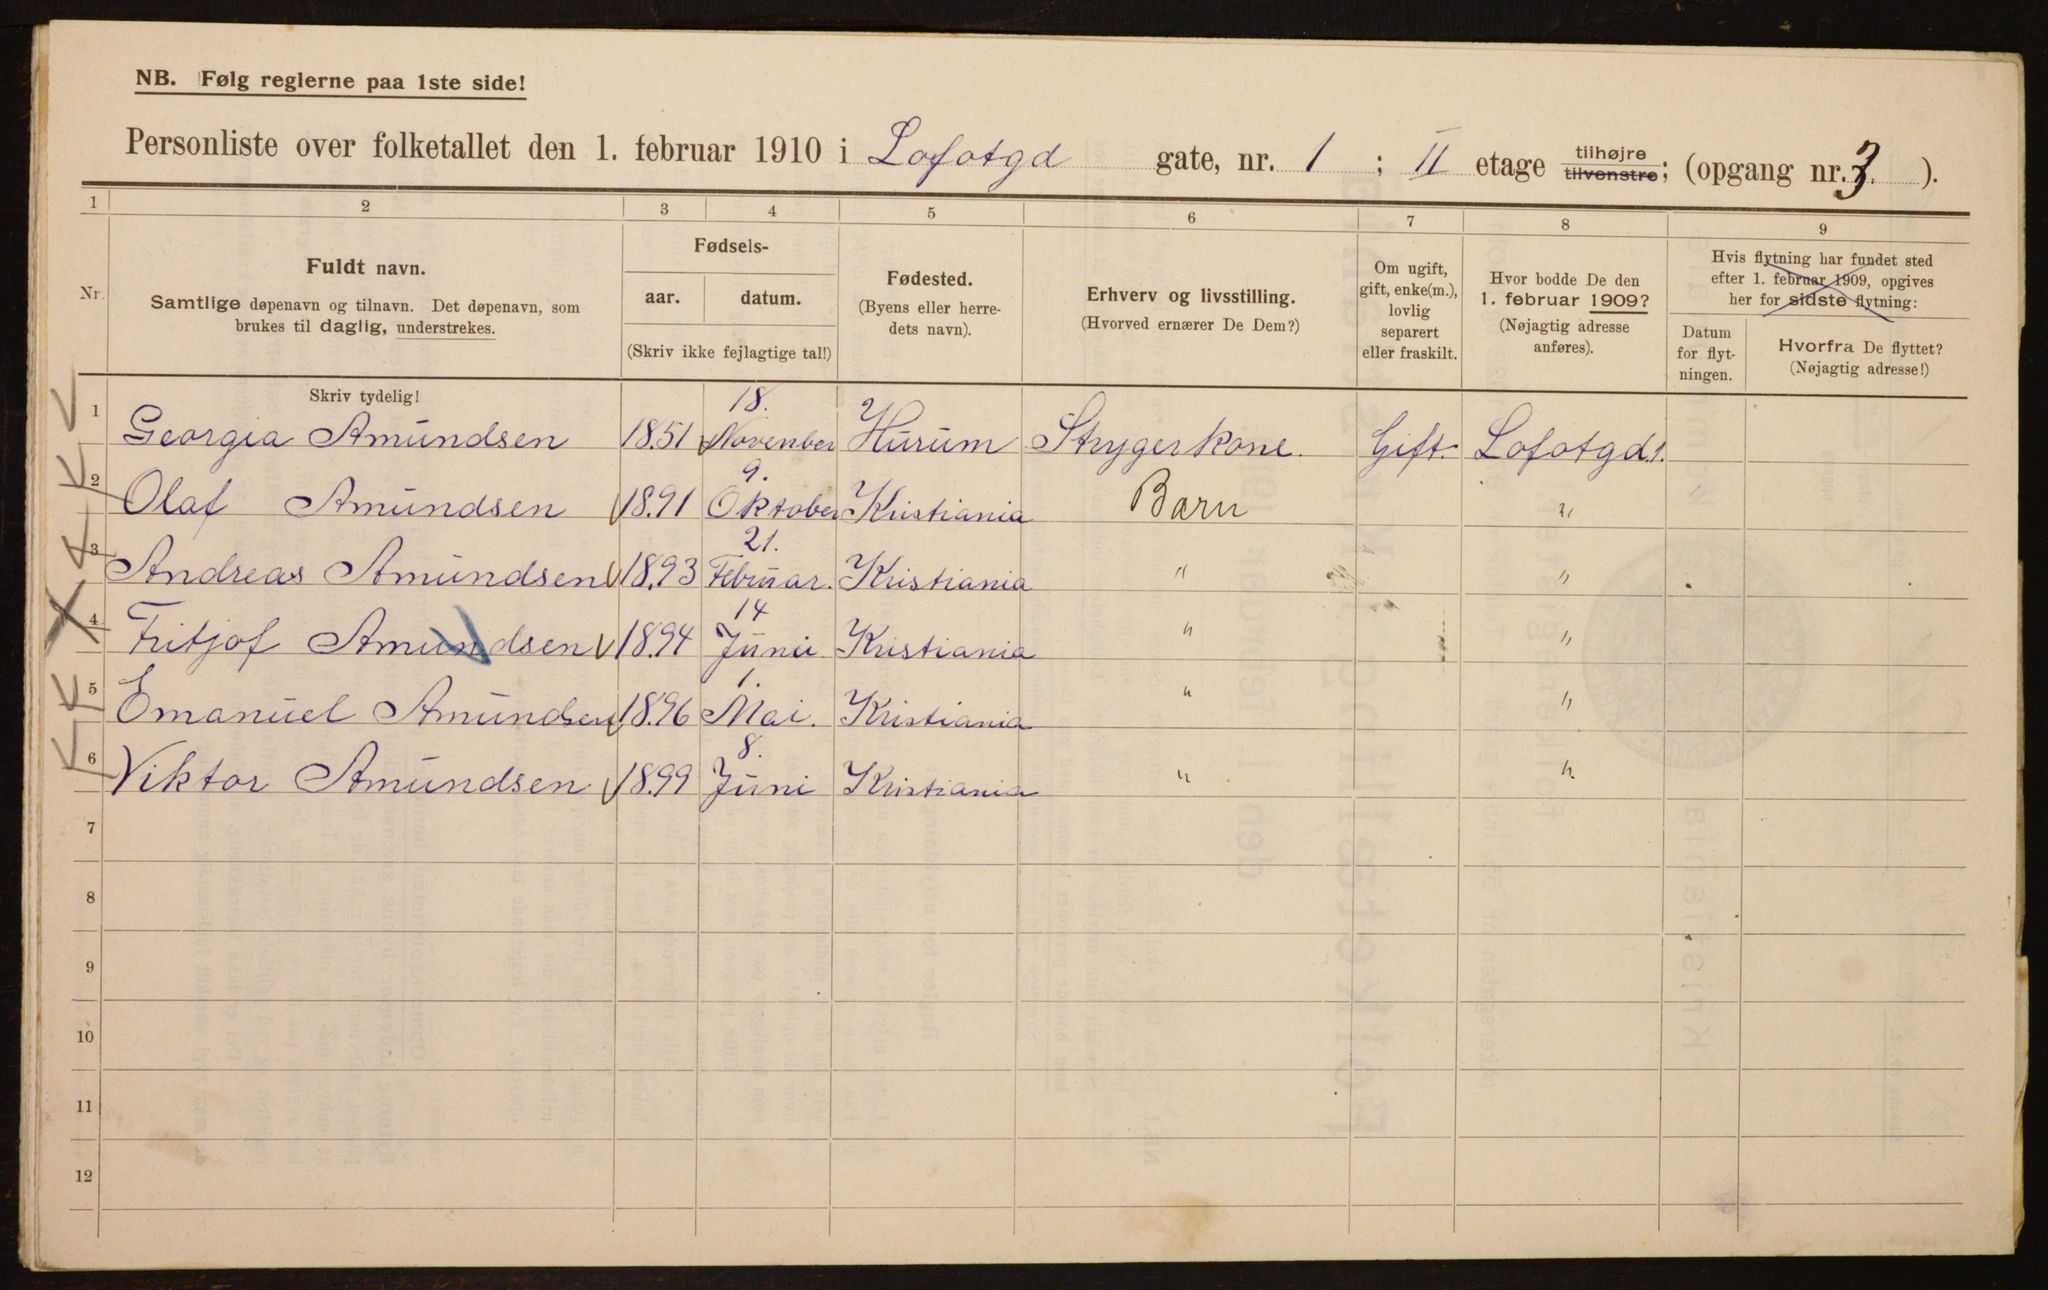 NB. Følg reglerne paa 1ste side!
Personliste over folketallet den 1. februar 1910 i Lofotgd gate, nr. 1 ; II etage tilhøjre tilvenstre; (opgang nr. 3. ).
1 2 3 4 5 6 7 8 9
Nr. Fuldt navn.
Samtlige døpenavn og tilnavn. Det døpenavn, som
brukes til daglig, understrekes.
Fødsels-
aar. datum.
(Skriv ikke fejlagtige tal!)
Fødested.
(Byens eller herre-
dets navn).
Erhverv og livsstilling.
(Hvorved ernærer De Dem?)
Om ugift,
gift, enke(m.),
lovlig
separert
eller fraskilt.
Hvor bodde De den
1. februar 1909?
(Nøjagtig adresse
anføres).
Hvis flytning har fundet sted
efter 1. februar 1909, opgives
her for sidste flytning:
Datum
for flyt-
ningen.
Hvorfra De flyttet?
(Nøjagtig adresse!)
Skriv tydelig!
1 Georgia Amundsen 1851 18. November Hurum Strygerkone. Gift. Lofotgd 1.
2 Olaf Amundsen 1891 9. Oktober Kristiania Barn "
3 Andreas Amundsen 1893 21. Februar. Kristiania " "
4 Fritjof Amundsen 1894 14 Juni Kristiania " "
5 Emanuel Amundsen 1896 1. Mai. Kristiania " "
6 Viktor Amundsen 1899 8. Juni Kristiania " "
7
8
9
10
11
12